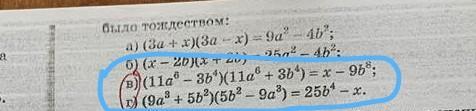 было тождеством:
а) (3a + x)(3a − x) = 9a² − 4b²;
б) (x − 2b)(x + 2b) = 25a² − 4b²;
в) (11a⁶ − 3b⁴)(11a⁶ + 3b⁴) = x − 9b⁸;
г) (9a³ + 5b²)(5b² − 9a³) = 25b⁴ − x.